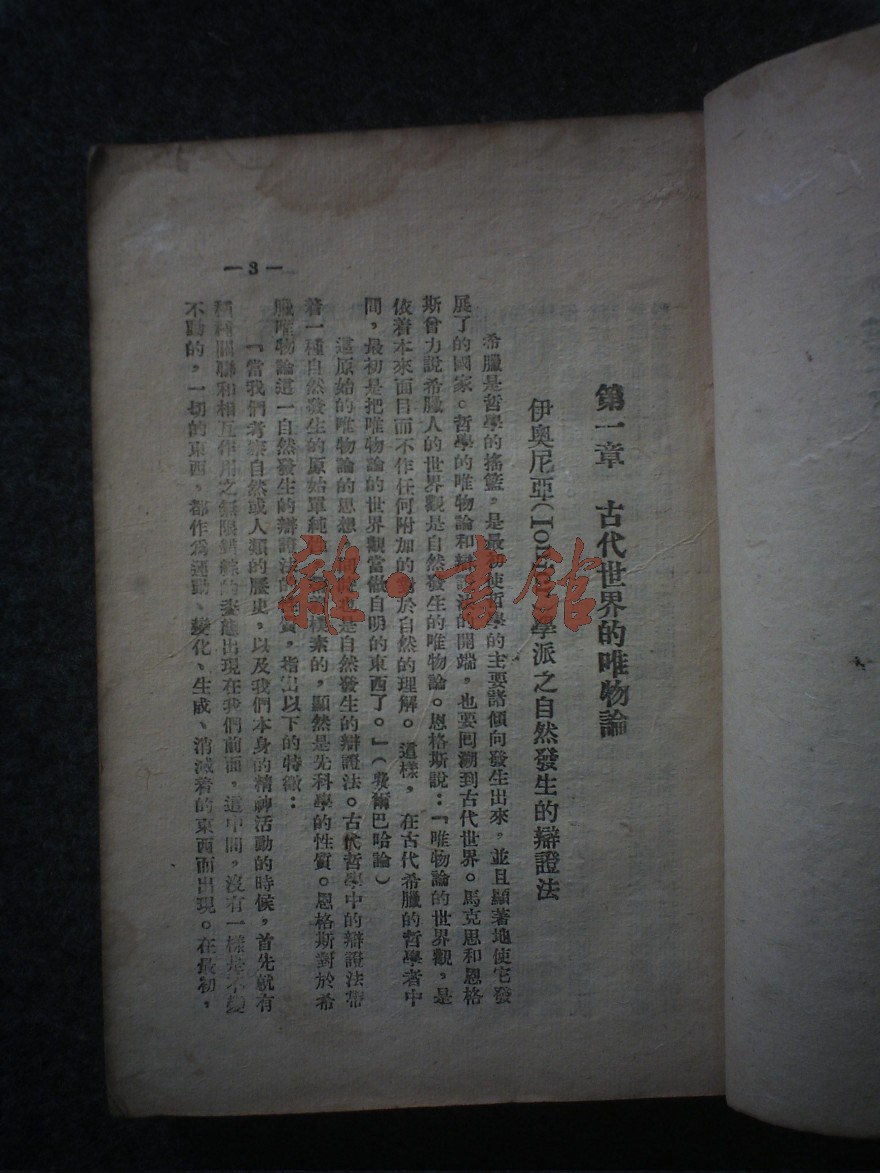 第一章　古代世界的唯物論
伊奧尼亞（Ionian）學派之自然發生的辯證法
希臘是哲學的搖籃，是最初使哲學的主要諸傾向發生出來，並且顯著地使它發
展了的國家。哲學的唯物論和辯證法的開端，也要囘溯到古代世界。馬克思和恩格
斯曾力說希臘人的世界觀是自然發生的唯物論。恩格斯說：「唯物論的世界觀，是
依着本來面目而不作任何附加的對於自然的理解。這樣，在古代希臘的哲學者中
間，最初是把唯物論的世界觀當做自明的東西了。」（費爾巴哈論）
這原始的唯物論的思想，同時也是自然發生的辯證法。古代哲學中的辯證法帶
着一種自然發生的原始單純 樸素的，顯然是先科學的性質。恩格斯對於希
臘唯物論這一自然發生的辯證法的性質，指出以下的特徵：
「當我們考察自然或人類的歷史，以及我們本身的精神活動的時候，首先就有
種種關聯和相互作用之無限錯綜的姿態出現在我們前面，這中間，沒有一樣是不變
不動的，一切的東西，都作爲運動、變化、生成、消滅着的東西而出現。在最初，
—3—
雜·書館